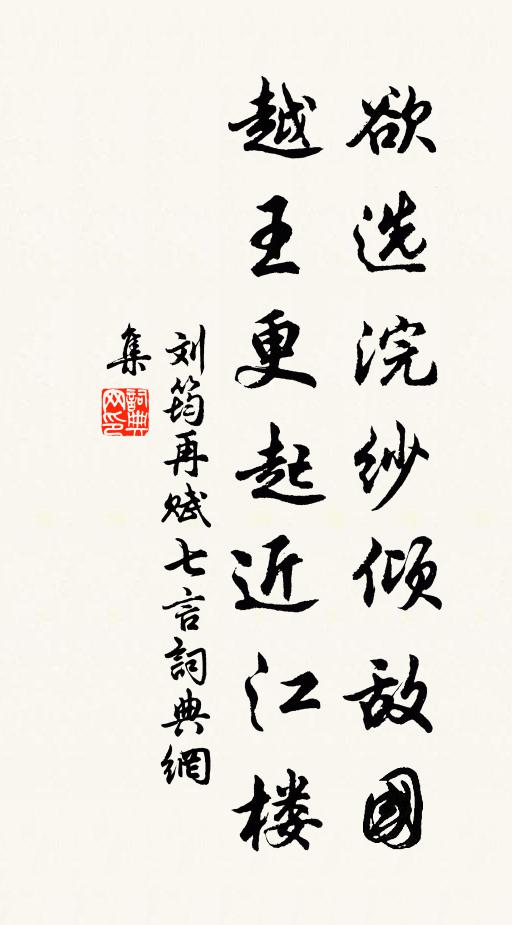 欲选浣纱倾敌國
越王更起近江楼
刘筠再赋七言詞典網
集
詞典
网印